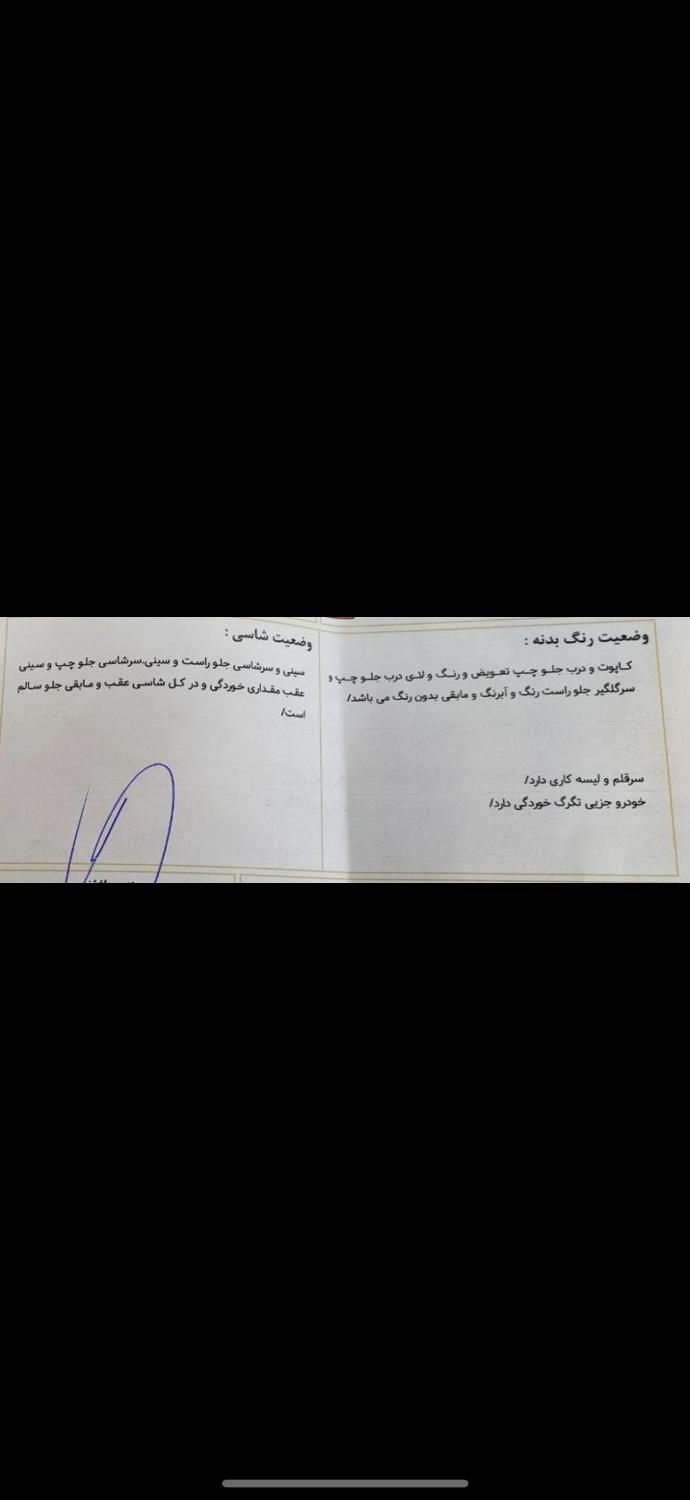 وضعیت رنگ بدنه :
کاپوت و درب جلو چپ تعویض و رنگ و لای درب جلو چپ و
سرگلگیر جلو راست رنگ و آبرنگ و مابقی بدون رنگ می باشد/
سرقلم و لیسه کاری دارد/
خودرو جزیی تگرگ خوردگی دارد/
وضعیت شاسی :
سینی و سرشاسی جلو راست و سینی.سرشاسی جلو چپ و سینی
عقب مقداری خوردگی و در کل شاسی عقب و مابقی جلو سالم
است/